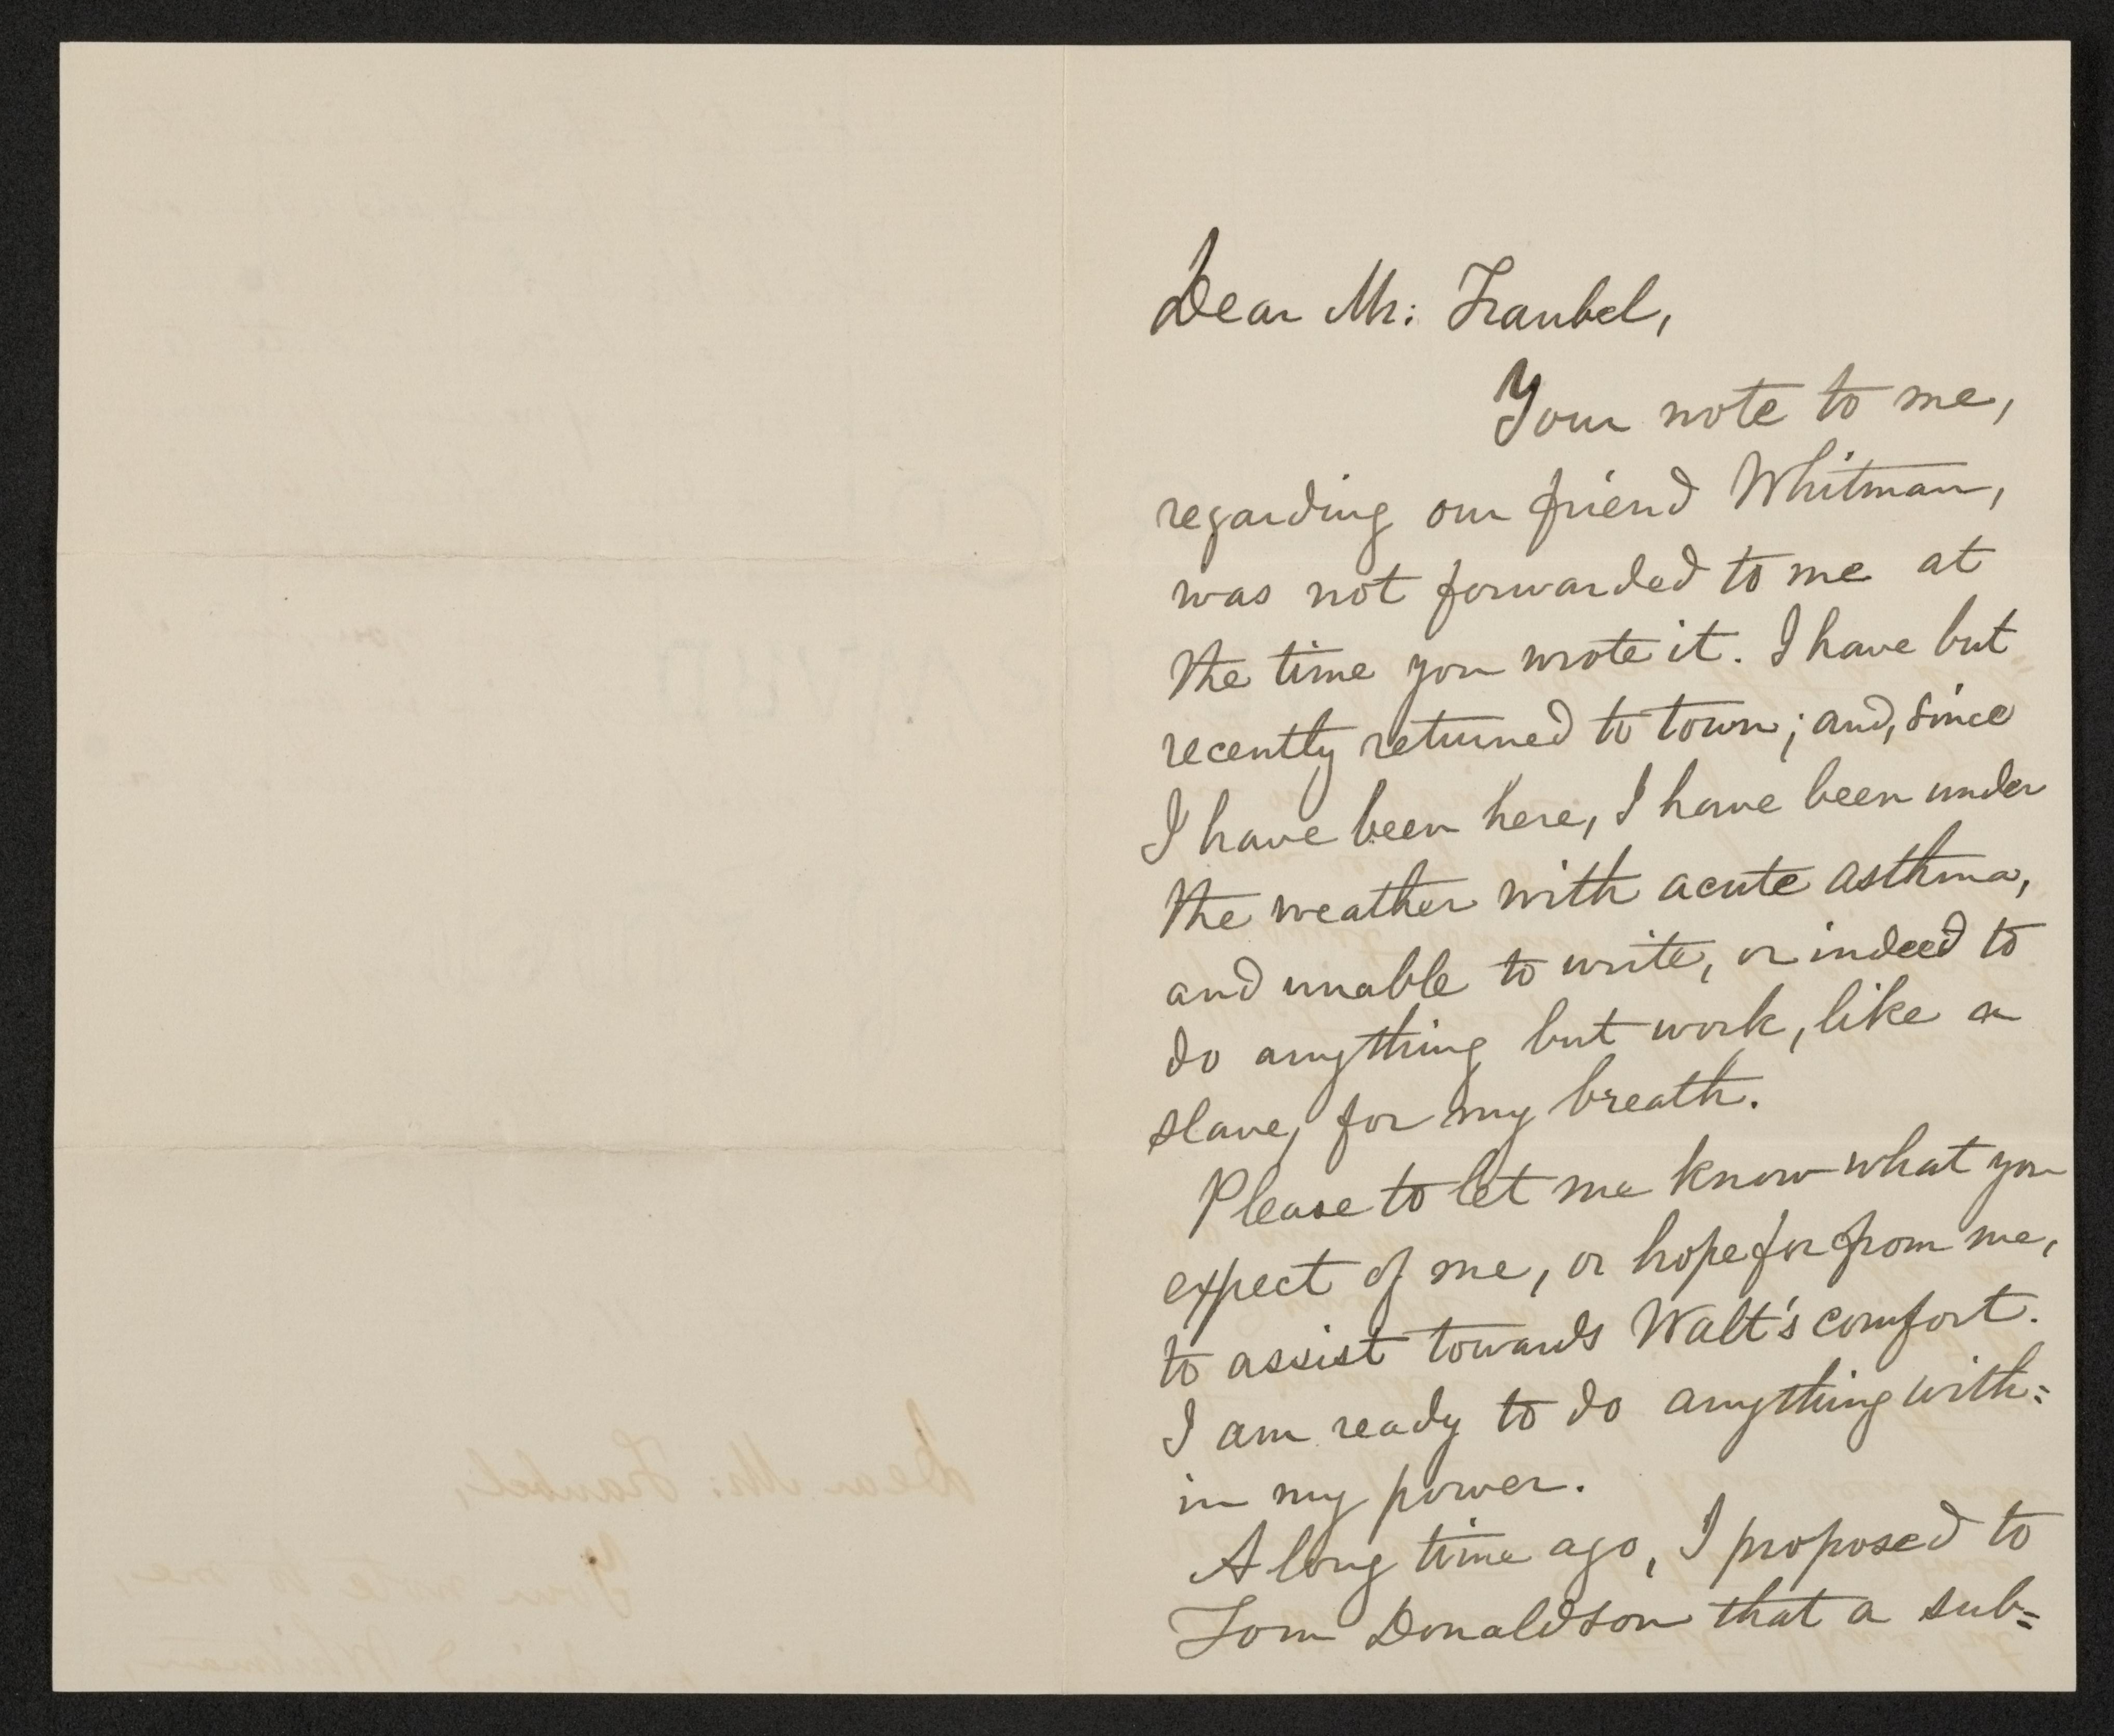 Dear Mr: Traubel,
Your note to me,
regarding our friend Whitman,
was not forwarded to me at
the time you wrote it. I have but
recently returned to town; and, since
I have been here, I have been under
the weather with acute asthma,
and unable to write, or indeed to
do anything but work, like a
slave, for my breath.
Please to let me know what you
expect of me, or hope for from me,
to assist towards Walt's comfort.
I am ready to do anything with=
in my power.
A long time ago, I proposed to
Tom Donaldson that a sub=